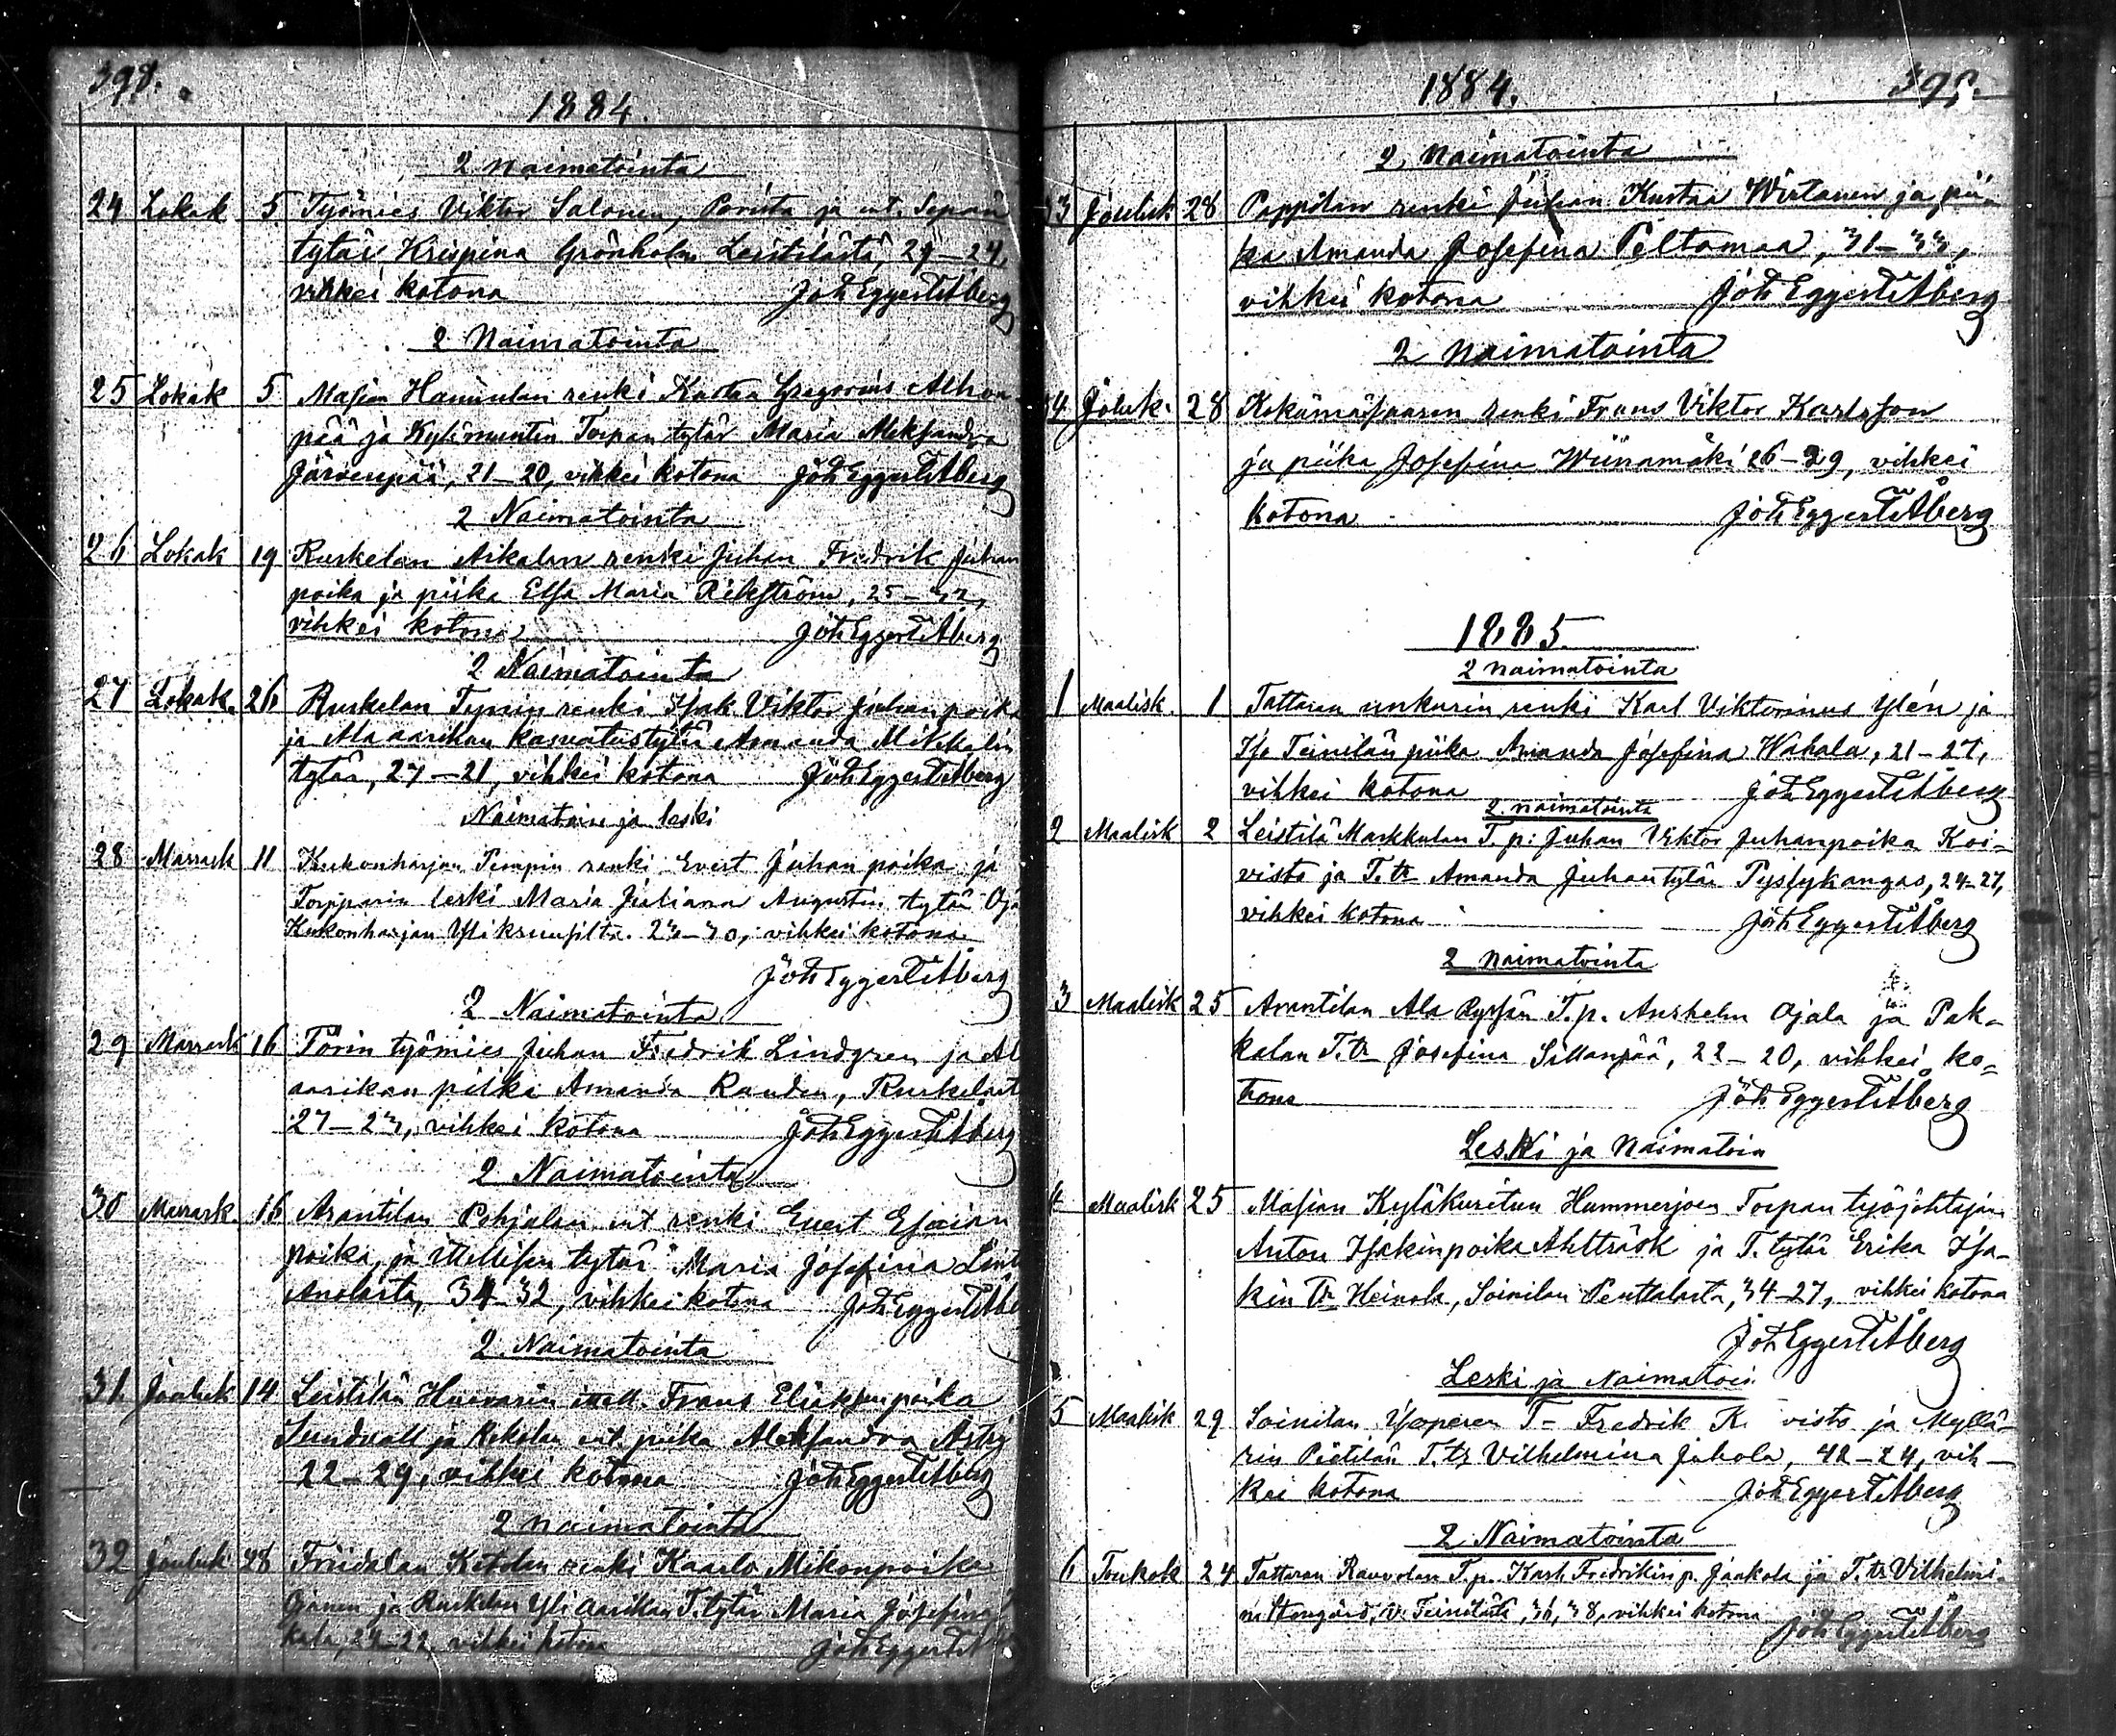 398.
1884.
2 Naimatointa
24 Lokak 5 Työmies Viktor Salonen, Porista ja ent. Sepän
tytär Krispina Grönholm Leistilästä, 29–24,
vihkei kotona Joh Eggert Åberg
2 Naimatointa
25 Lokak 5 Masian Hannulan renki Kustaa Gregorius
pää ja Torpan tytär Maria Aleksandra
Järvenpää, 21–20, vihkei kotona Joh Eggert Åberg
2 Naimatointa
26 Lokak 19 Ruskelan Aikalan renki Juhan Fredrik Juhan
poika ja piika Elsa Maria 25–32,
vihkei kotona Joh Eggert Åberg
2 Naimatointa
27 Lokak. 26 Ruskelan renki Isak Viktor Juhanpoika
ja Ala aarikan kasvatustytär Amanda Mikkelin
tytär, 27–21, vihkei kotona Joh Eggert Åberg
Naimatoin ja leski
28 Marrask 11 Kukonharjan renki Evert Juhan poika ja
Torpparin leski Maria Juliana Augustin tytär Oja
Kukonharjan 23–30, vihkei kotona
Joh Eggert Åberg
2 Naimatointa
29 Marrask 16 Törin työmies Juhan Fredrik Lindgren ja Al
aarikan piika Amanda Randen, Ruskelast
27–23, vihkei kotona Joh Eggert Åberg
2 Naimatointa
30 Marrask. 16 Arantilan Pohjalan ent renki Evert Esaian
poika, ja itsellisen tytär Maria Josefina
Anolasta, 34–32, vihkei kotona Joh Eggert Åbe
2 Naimatointa
31 Jouluk 14 Leistilän Huovarin itsell. Frans
Sundvall ja ent. piika Aleksandra
22–29, vihkei kotona Joh Eggert Åberg
2 Naimatointa
32 Jouluk 28 Friidalan Kotolan renki Kaarlo Mikonpoika
Ojanen ja Ruskelan Yli aarikan T. tytär Maria Josefina
22–22, vihkei kotona Joh Eggert
1884. 399.
2 Naimatointa
33 Jouluk 28 Pappilan renki Juhan Kustaa Wirtanen ja pii-
ka Amanda Josefina Peltomaa, 31–33,
vihkei kotona Joh Eggert Åberg
2 Naimatointa
34 Jouluk. 28 Kokämäsaaren renki Frans Viktor Karlsson
ja piika Josefina Wiinamäki 26–29, vihkei
kotona Joh Eggert Åberg
1885
2 naimatointa
1 Maalisk. 1 Tattaran unkurin renki Karl Viktorinus Ylén ja
Iso Teinilän piika Amanda Josefina Wahala, 21–27,
vihkei kotona Joh Eggert Åberg
2 naimatointa
2 Maalisk 2 Leistilä Markkulan T. p: Juhan Viktor Juhanpoika Koi-
visto ja T. tr Amanda Juhantytär Pyssykangas, 24–27,
vihkei kotona Joh Eggert Åberg
2 Naimatointa
3 Maalisk 25 Arantilan Ala Pyssän T. p. Anshelm Ojala ja Pak-
kalan T. tr Josefina Sillanpää, 22–20, vihkei ko-
tona Joh Eggert Åberg
Leski ja Naimatoin
4 Maalisk 25 Masian Kyläkuritun Hammerjoen Torpan työjohtajan
Anton Isakinpoika Ahlträsk ja T. tytär Erika Isa-
kin Tr Heinola, Soinilan Penttalasta, 34–27, vihkei kotona
Joh Eggert Åberg
Leski ja Naimatoi
5 Maalisk 29 Soinilan T– Fredrik K visto ja Myllä-
rin Pietilän T. tr Vilhelmina Jakola, 42–24, vih-
kei kotona Joh Eggert Åberg
2 Naimatointa
6 Toukok 24 Tattaran Rauvolan T. p. Karl Fredrikin p. Jaakola ja T. tr Vilhelmi-
na Stengård, V. Teinilästä, 36, 38, vihkei kotona
Joh Eggert Åberg